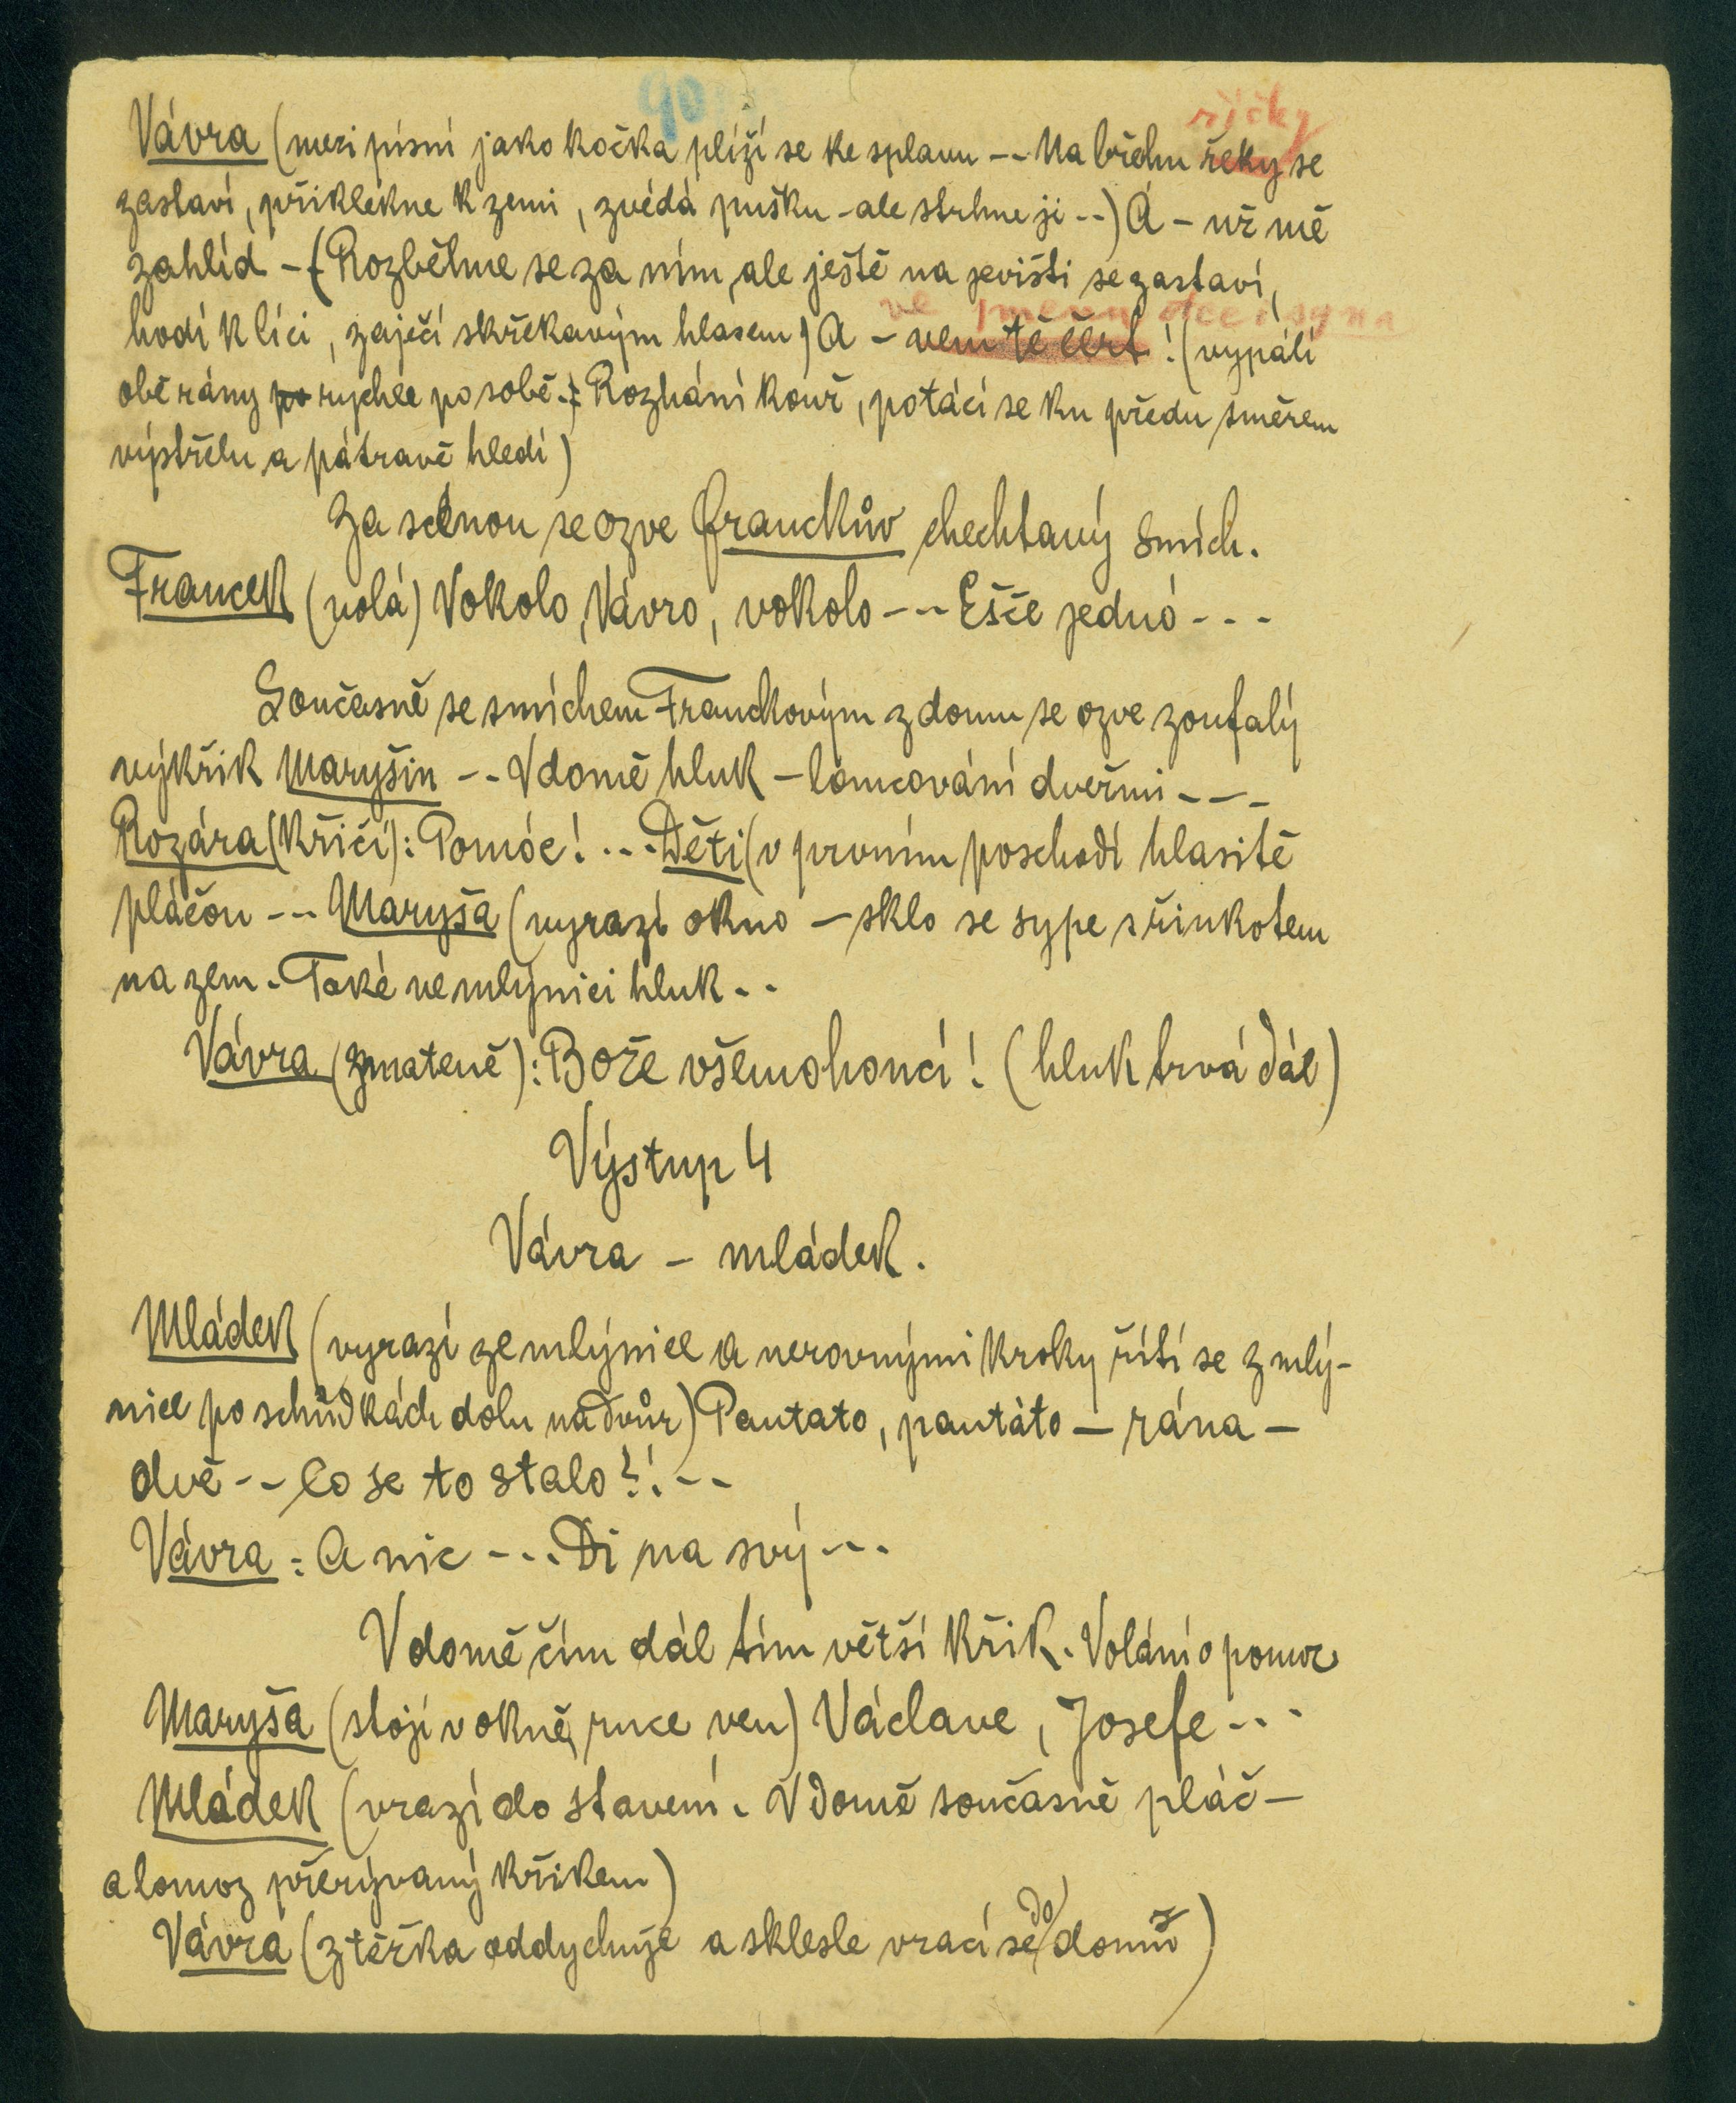 90
říčky
Vávra (mezi písní jako kočka plíží se ke splavu -- Na břehu řeky se
zastaví, přiklekne k zemi, zvédá pušku - ale strhne ji --) Á - už mě
zahlíd - (Rozběhne se za ním, ale ještě na jevišti se zastaví,
ve jménu otce i syna
hodí k líci, zaječí skřekavým hlasem) A - vem tě čert! (vypálí
obě rány po rychle po sobě. Rozhání kouř, potácí se ku předu směrem
výstřelu a pátravě hledí)
Za scénou se ozve Franckův chechtavý smích.
Francek (volá) Vokolo, Vávro, vokolo --- Ešče jednó - - -
Současně se smíchem Franckovým z domu se ozve zoufalý
výkřik Maryšin -- V domě hluk - lomcování dveřmi - - -
Rozára (křičí): Pomóc! ... Děti (v prvním poschodí hlasitě
pláčou --- Maryša (vyrazí okno - sklo se sype s řinkotem
na zem. Také ve mlýnici hluk - -
Vávra (zmateně): Bože všemohoucí! (hluk trvá dál)
Výstup 4
Vávra - mládek.
Mládek (vyrazí ze mlýnice a nerovnými kroky řítí se z mlý-
nice po schůdkách dolu na dvůr) Pantato, pantáto - rána -
dvě -- Co se to stalo?! --
Vávra: A nic --- Di na svý ---
V domě čím dál tím větší křik. Volání o pomoc
Maryša (stojí v okně, ruce ven) Václave, Josefe - - -
Mládek (vrazí do stavení. V domě současně pláč -
a lomoz přerývaný křikem)
do
Vávra (ztěžka oddychuje a sklesle vrací se domů)